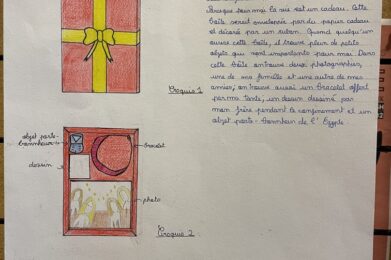 Presque pour moi la vie est un cadeau. Cette
boîte serait enveloppée par du papier cadeau
et décoré par un ruban. Quand quelqu'un
ouvre cette boîte, il trouve plein de petits
objets qui sont importants pour moi. Dans
cette boîte on trouve deux photographies,
une de ma famille et une autre de mes
amies; on trouve aussi un bracelet offert
par ma tante, un dessin dessiné par
mon frère pendant le confinement et un
objet porte-bonheur de l'Égypte.
Croquis 1
objet porte-
bonheur
bracelet
dessin
photo
Croquis 2